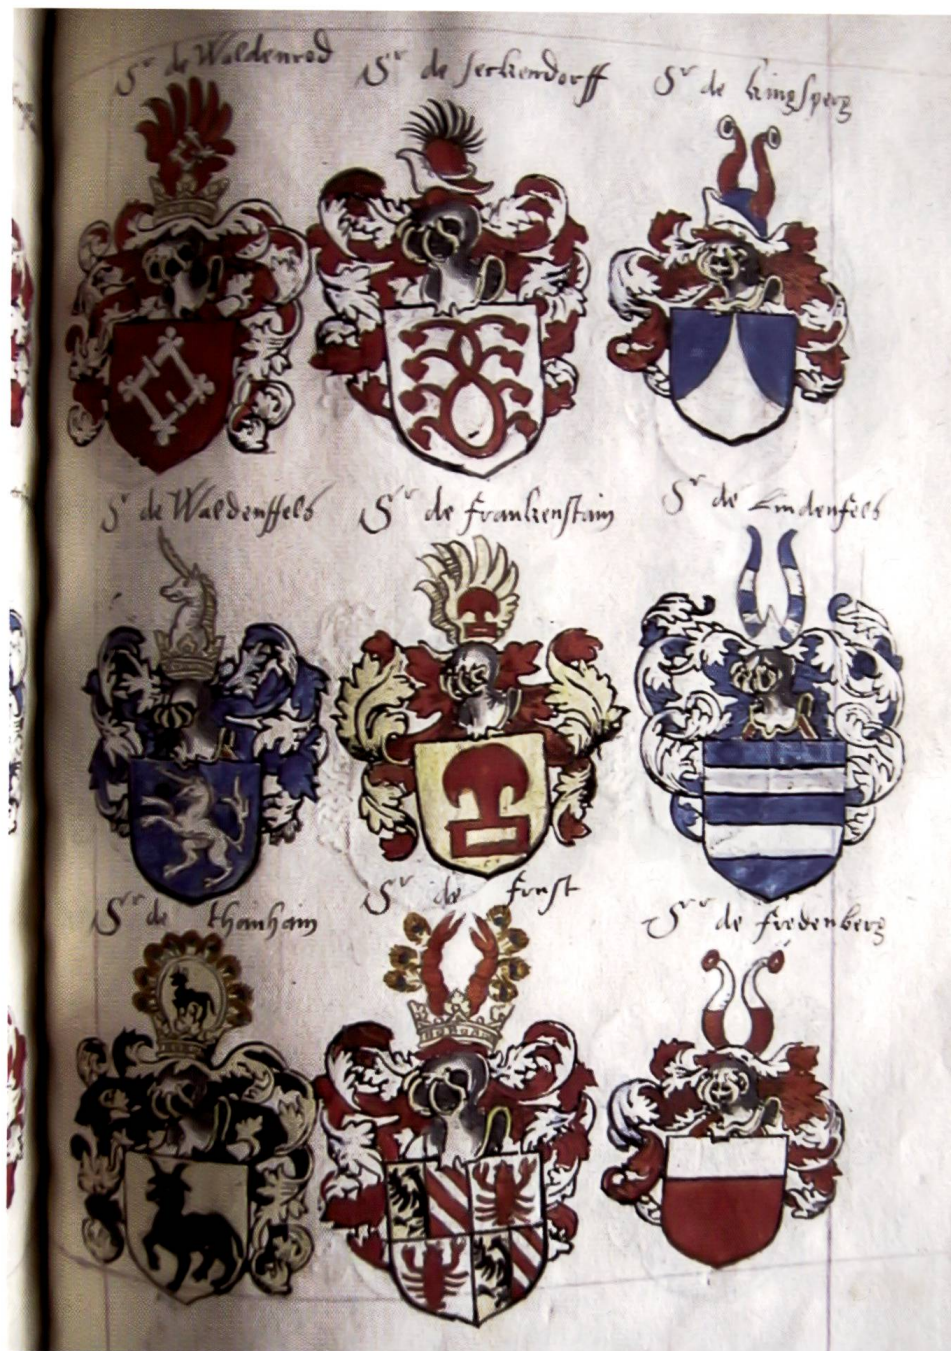 Sr de Waldenrod
Sr de Seckendorff
Sr de Kingsperg
Sr de Waldenffels
Sr de Frankenstain
Sr de Lindenfels
Sr de thanhaim
Sr de Frust
Sr de Fredenberg